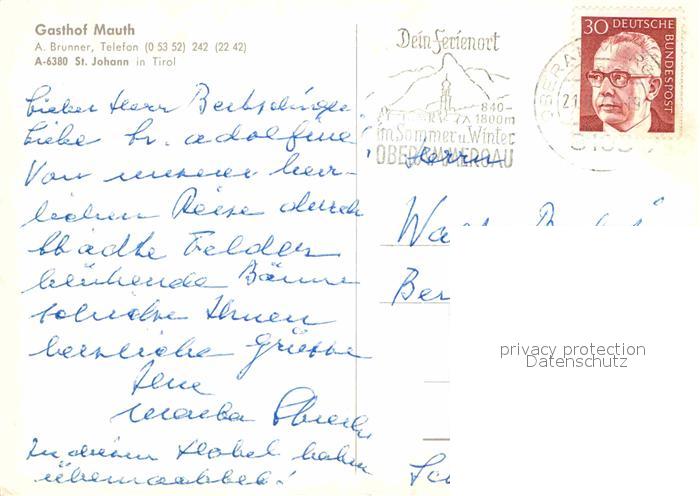 Gasthof Mauth
A. Brunner, Telefon (0 53 52) 242 (22 42)
A-6380 St. Johann in Tirol
Lieber Herr
Liebe Fr. Adolfine!
Von unserer herr-
lichen Reise durch
Städte Felder
blühende Bäume
schicke Ihnen
herzliche Grüsse
Ihre
In diesem Hotel haben
übernachtet!
Dein Ferienort
840-
1800m
im Sommer u. Winter
OBERAMMERGAU
30 DEUTSCHE
BUNDESPOST
Herrn
privacy protection
Datenschutz